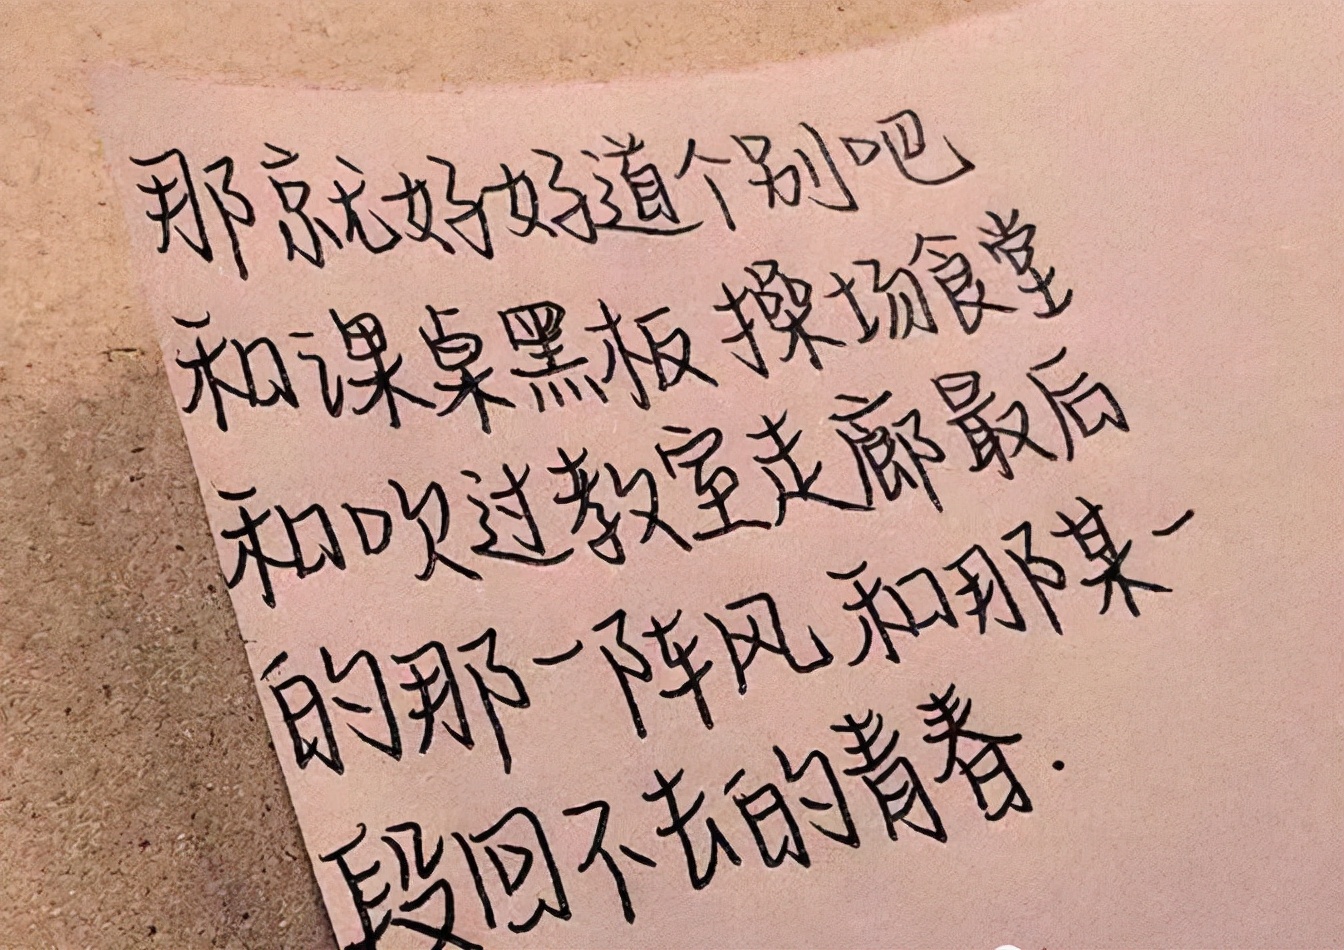 那就好好道个别吧
和课桌黑板操场食堂
和吹过教室走廊最后
的那一阵风和那某一
段回不去的青春.